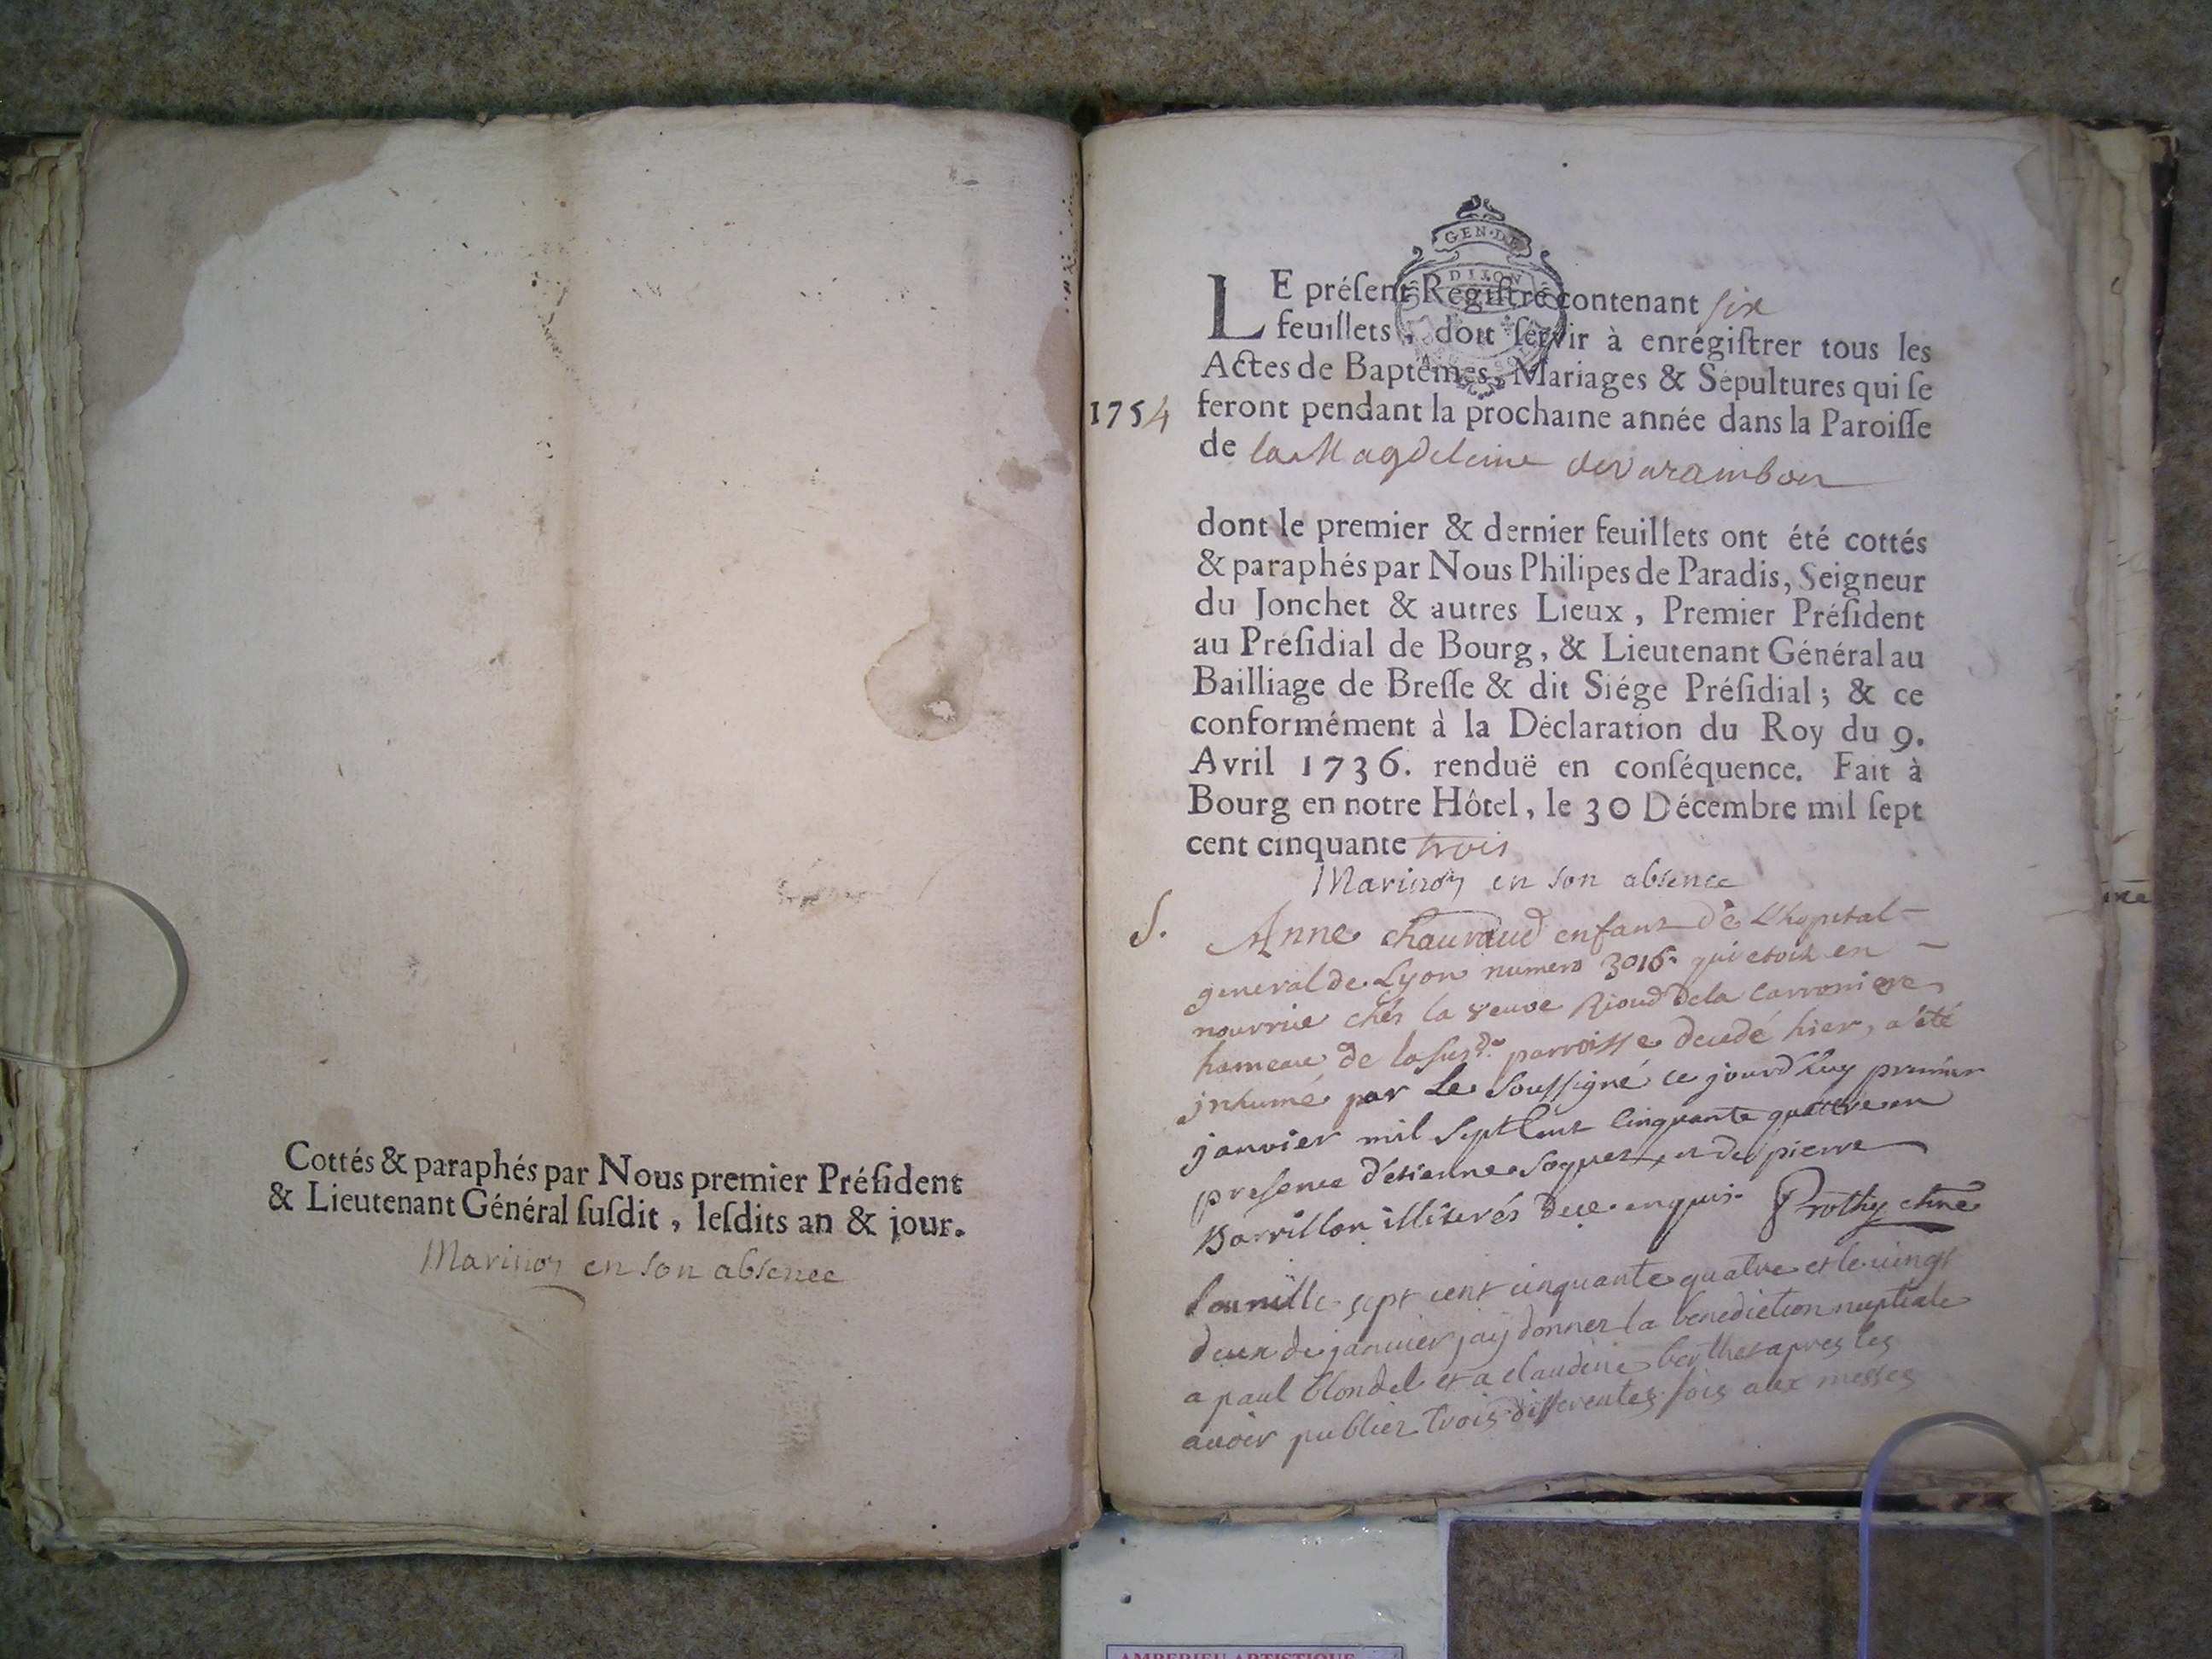 Cottés & paraphés par Nous premier Préſident
& Lieutenant Général ſuſdit, leſdits an & jour.
en son absence
GEN. DE
DIJON
LE préſent Regiſtre contenant six
feuillets, doit ſervir à enrégiſtrer tous les
Actes de Baptêmes, Mariages & Sépultures qui ſe
1754 feront pendant la prochaine année dans la Paroiſſe
de la Magdeleine de varambon
dont le premier & dernier feuillets ont été cottés
& paraphés par Nous Philipes de Paradis, Seigneur
du Jonchet & autres Lieux, Premier Préſident
au Préſidial de Bourg, & Lieutenant Général au
Bailliage de Breſſe & dit Siége Préſidial; & ce
conformément à la Déclaration du Roy du 9.
Avril 1736. renduë en conſéquence. Fait à
Bourg en notre Hôtel, le 30 Décembre mil ſept
cent cinquante trois
en son absence
S. Anne chauvaud enfant de L'hopital
general de Lyon numero 3016. qui etoit en
nourrice chés la veuve Rioud de la Carroniere
hameau de la susd.e parroisse decedé hier, a été
inhumé par Le Soussigné ce jourd'huy premier
janvier mil Sept Cent Cinquante quattre en
presence d'etienne Soquet, et de pierre
Barrillon illiterés de ce enquis. Prothy
L'an mille sept cent cinquante quatre et le vingt
deux de janvier jaÿ donner la benediction nuptiale
a paul blondel et a claudine berthet apres les
avoir publiez trois differentes fois aux messes
AMBERIEU ARTISTIQUE